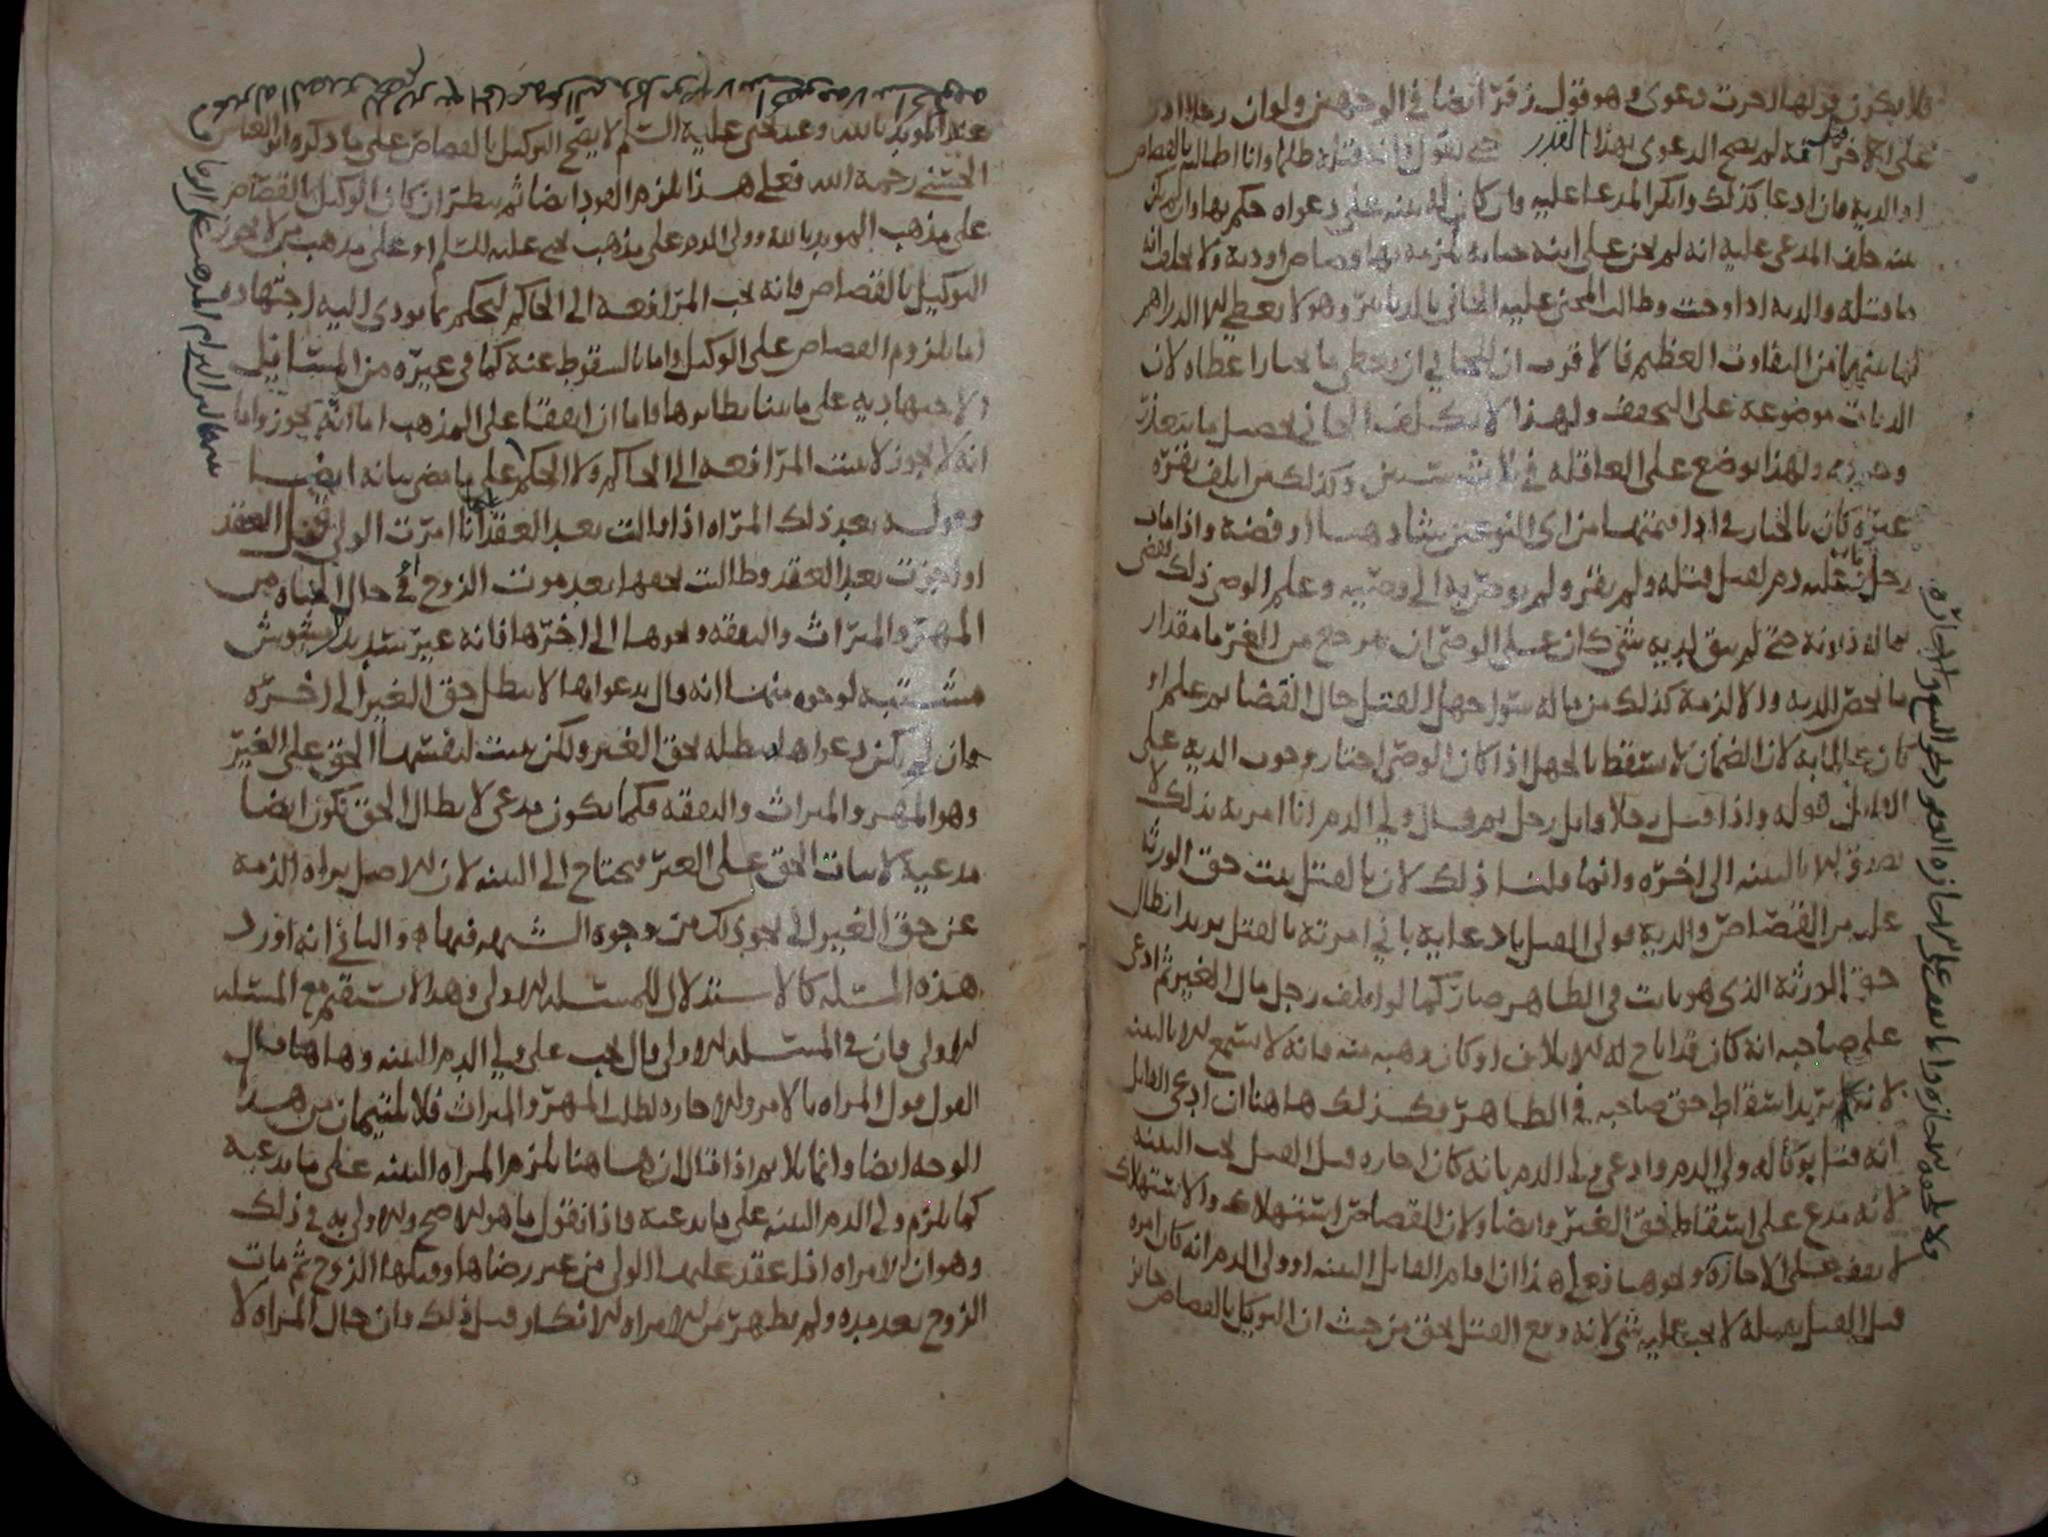 فلا يكون قولها اخرت دعوى وهو قول زفر ايضا في الوجهين ولو ان رجلا ادعى
على الاخر قتل لم يصح الدعوى بهذا القدر حتى يقول فانه قتله ظلما وانا اطالبه بالقصاص
او الدية فان ادعا كذلك وانكر المدعا عليه وان كان له بينه على دعواه حكم بها وان لم يكن
بينه حلف المدعى عليه انه لم يجن على ابنه جناية يلزمه بها قصاص او دية ولا يحلف انه
ما قتله والدية اذا وجبت وطالب المجنى عليه الجاني بالدنانير وهو لا يعطي الا الدراهم
لما بينهما من التفاوت العظيم فالاقرب ان للجاني ان يعطي ما يختار اعطاه لان
الديات موضوعة على التخفيف ولهذا لا يكلف الجاني تحصيل ما يتعذر
ولهذا يوضع على العاقله في ثلاث سنين وكذلك من اتلف بقرة
غيره كان بالخيار في اداء قيمتها من اي النوعين شاء ذهبا او فضة واذا مات
رجل عليه دم لقتيل قتله ولم يقر ولم يوص به الى وصيه وعلم الوصي ذلك فقضى
بماله ديونه حتى لم يبق لديه شي كان على الوصي ان يرجع من الغرما مقدار
ما يخص الدية والا لزمه كذلك من ماله سوا جهل القتل حال القضا ثم علم او
كان عالما به لان الضمان لا يسقط بالجهل اذا كان الوصي اختار وجوب الدية على
القاتل قوله واذا قتل رجلا قاتل رجل ثم قال ولي الدم انا امرته بذلك لا
يصدق الا بالبينه الى اخره وانما قلنا ذلك لان بالقتل يثبت حق الورثة
عليه من القصاص والدية فولي القتيل بادعايه باني امرته بالقتل يريد ابطال
حق الورثة الذي هو ثابت في الظاهر صار كما لو اتلف رجل مال الغير ثم ادعى
على صاحبه انه كان قد اباح له الاتلاف او كان وهبه منه فانه لا يسمع الا بالبينه
لانه يريد اسقاط حق صاحبه في الظاهر وكذلك هاهنا ان ادعى القاتل
انه قتل بوكالة ولي الدم وادعى ولي الدم بانه كان اجازه قبل القتل يجب البينه
لانه مدع على اسقاط حق الغير وايضا ولان القصاص استهلاك والاستهلاك
لا يقف على الاجازة ونحوها فعلى هذا ان اقام القاتل البينه او ولي الدم انه كان امره
قبل القتل بقتله لا يجب عليه شي لانه وقع القتل بحق من حيث ان التوكيل بالقصاص جايز
عند المؤيد بالله وعند يحيى عليه السلم لا يصح التوكيل بالقصاص على ما ذكره ابو العباس
الحسني رحمه الله فعلى هذا يلزم القود ايضا ثم ينظر ان كان الوكيل بالقصاص
على مذهب المويد بالله وولي الدم على مذهب يحيى عليه السلم او على مذهب من لا يجوز
التوكيل بالقصاص فانه يجب المرافعة الى الحاكم ليحكم بما يودي اليه اجتهاده
اما بلزوم القصاص على الوكيل واما بالسقوط عنه كما في غيره من المسائل
الاجتهاديه على ما بينا نظايرها فاما ان اتفقا على المذهب اما انه يجوز واما
انه لا يجوز لا يثبت المرافعه الى الحاكم ولا الحكم على ما مضى بيانه ايضا
وقوله بعد ذلك المراه اذا قالت بعد العقد انا امرت الولي قبل العقد
او اجزت بعد العقد وطالبت بحقها بعد موت الزوج او في حال الحياه من
المهر والميراث والنفقه ونحوها الى اخرها فانه غير سديد مشوش
مشتبه لوجوه منها انه قال بدعواها لا يبطل حق الغير الى اخره
وان لم يكن دعواها مبطله لحق الغير ولكن يثبت لنفسها الحق على الغير
وهو المهر والميراث والنفقه فكما يكون مدعي لابطال الحق تكون ايضا
مدعية لاثبات الحق على الغير فيحتاج الى البينه لان الاصل براءة الذمة
عن حق الغير الى نحو ذلك من وجوه الشبهه فيها والثاني انه اورد
هذه المسئله كالاستدلال للمسئله الاولى وهذا لا يستقيم مع المسئله
الاولى فان في المسئله الاولى قال يجب على ولي الدم البينه وهاهنا قال
القول قول المراه بالامر والاجازه لطلب المهر والميراث فلا يلتيمان من هذا
الوجه ايضا وانما يلايم اذا قال ان هاهنا يلزم المراه البينه على ما يدعيه
كما يلزم ولي الدم البينه على ما يدعيه فاذا نقول ما هو الاصح والاولى به في ذلك
وهو ان الامراه اذا عقد عليها الولي من غير رضاها وقبلها الزوج ثم مات
الزوج بعد مده ولم يظهر من الامراه الانكار قبل ذلك وان حال المراه لا